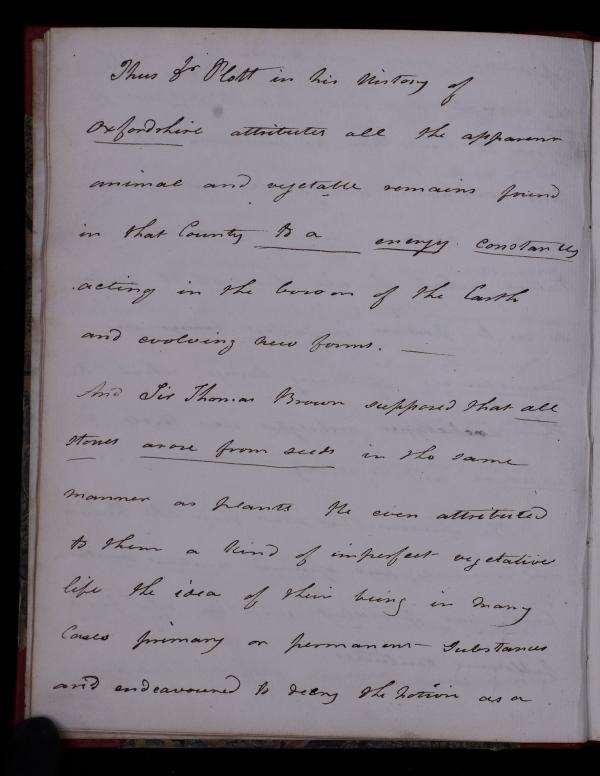 Thus Dr Plott in his History of
Oxfordshire attributes all the apparent
animal and vegetable remains found
in that County to a energy constantly
acting in the bosom of the Earth
and evolving new forms. —
And Sir Thomas Brown supposed that all
stones arose from seeds in the same
manner as plants He even attributed
to them a kind of imperfect vegetative
life the idea of their being in many
Cases primary or permanent Substances
and endeavoured to decry the notion as a